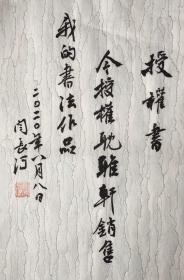 授權書
今授權耽雅軒銷售
我的書法作品
二〇二〇年八月八日
闫長河